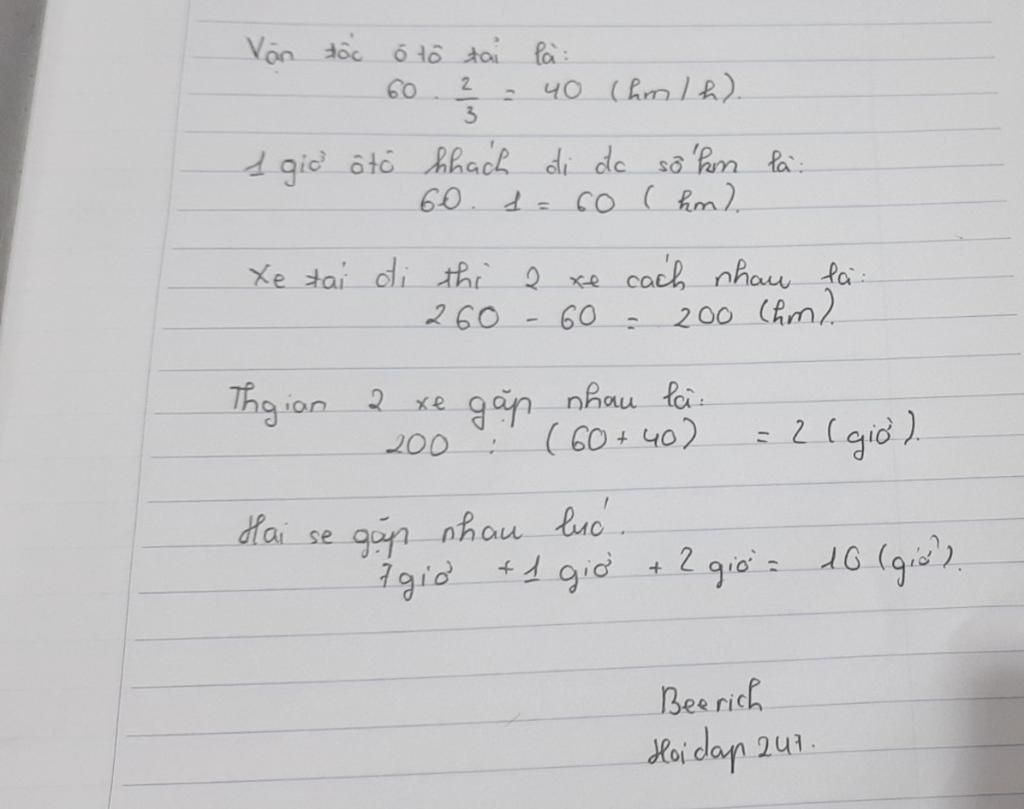 Vận tốc ô tô tải là:
60 . 2/3 = 40 (km/h).
1 giờ ôtô khách đi dc số km là:
60 . 1 = 60 (km).
Xe tải đi thì 2 xe cách nhau là:
260 - 60 = 200 (km).
Thgian 2 xe gặp nhau là:
200 : (60 + 40) = 2 (giờ).
Hai se gặp nhau lúc.
7 giờ + 1 giờ + 2 giờ = 10 (giờ).
Beerich
Hoidap 247.